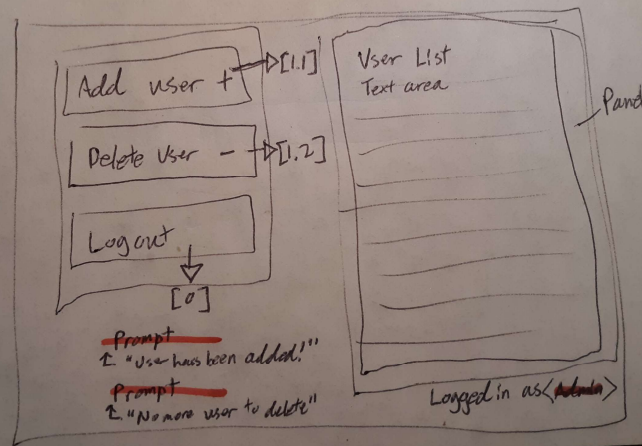 Add user +
[1.1]
Delete User -
[1.2]
Logout
[0]
Prompt
"User has been added!"
Prompt
"No more user to delete"
User List
Text area
Logged in as <Admin>